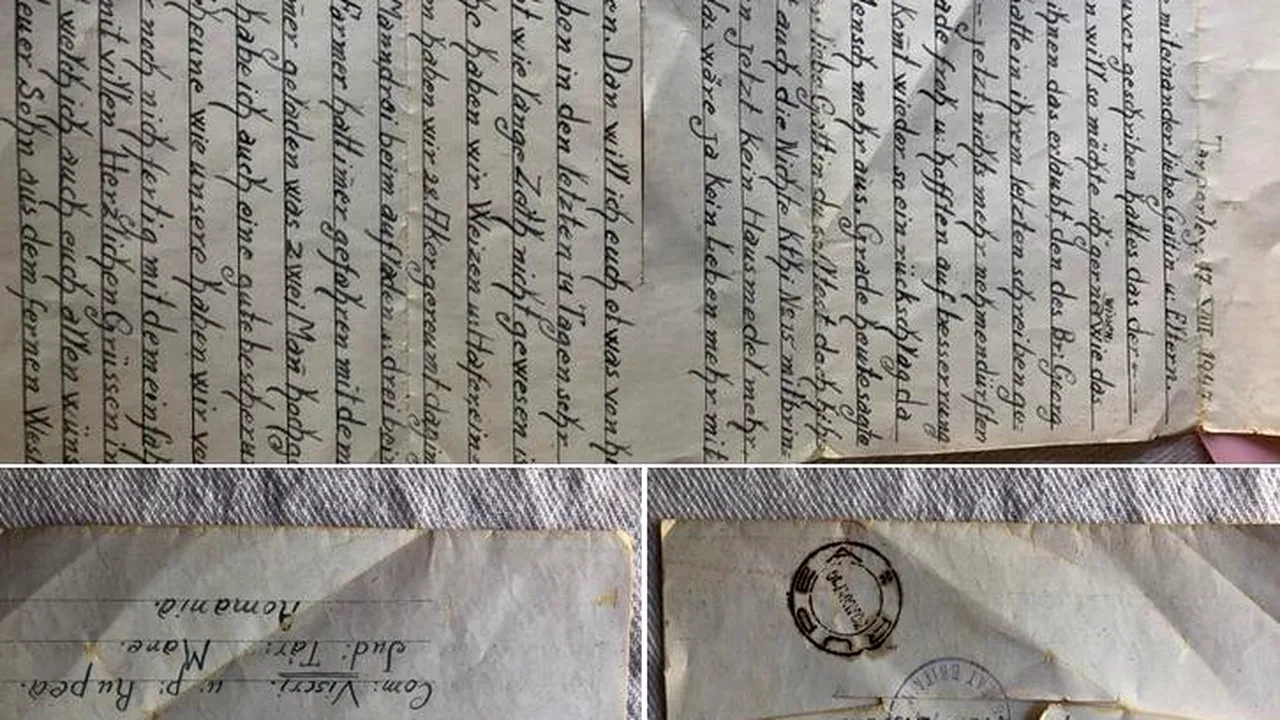 Tarporley. 17. VIII 194
miteinander liebe Gattin u. Eltern.
geschriben hat es das der - -
n will so möchte ich gerne wissen wie das
ihnen das erlaubt den des Bri: Georg
hatte in ihrem letzten schreiben ge
- jetzt nichts mehr nehmen dürften
ade froh u. hofften auf besserrung
Komt wieder so ein rückschlag da
Mensch mehr aus. Grade heute sagte
liebe Gattin du solltest doch bitte
auch die Nichte Kthi Neiss mitbrin
n jetzt kein Hausmedel mehr
da wäre ja kein lieben mehr mit
en. Dan will ich euch etwas von h
ben in den letzten 14 Tagen sehr
t wie lange Zeit nicht gewesen i
e haben wir Weizen u. Hafer ein
n haben wir 28 Alker gereumt
Mann drei beim aufladen u. drei bei
farmer hatt imer gefahren mit dem
mer geladen was zwei Man hochg
habe ich auch eine gute
cheune wie unsere haben wir
noch nich fertig mit dem einfah
mit willen Herzlichen Grüssen in
welch ich auch euch allen wüns
euer Sohn aus dem fernen West
Com: Viscri. u. p: Rupea.
Jud: Târ: Mare.
Romania.
RUPEA
AT BRITAIN